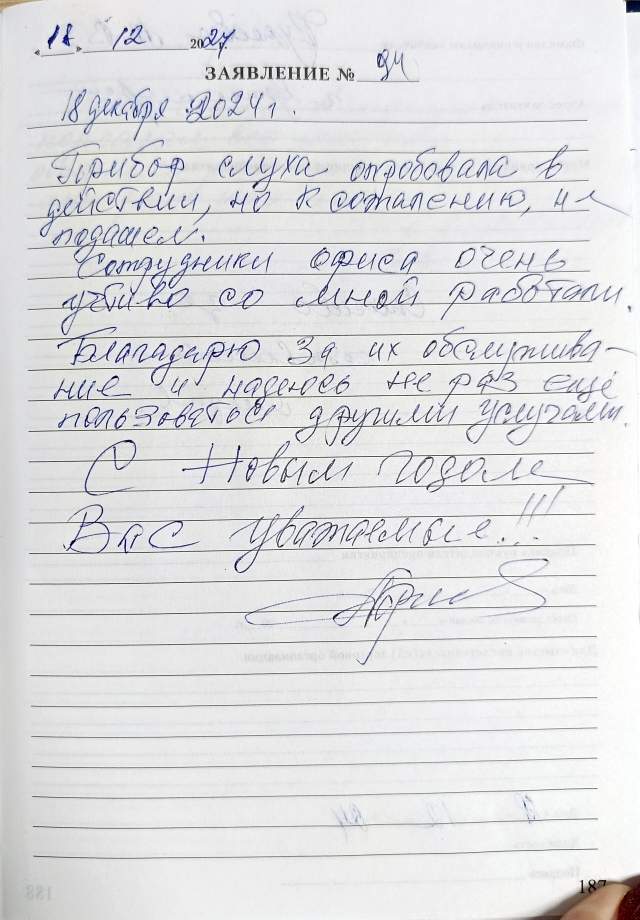 « 18 » 12 2024 г.
ЗАЯВЛЕНИЕ № 94
18 декабря 2024 г.
Прибор слуха опробовала в
действии, но к сожалению, не
подашел.
Сотрудники офиса очень
учтиво со мной работали.
Благадарю за их обслужива-
ние и надеюсь не раз ещё
пользоваться другими услугами.
С Новым годом
Вас уважаемые!!!
187